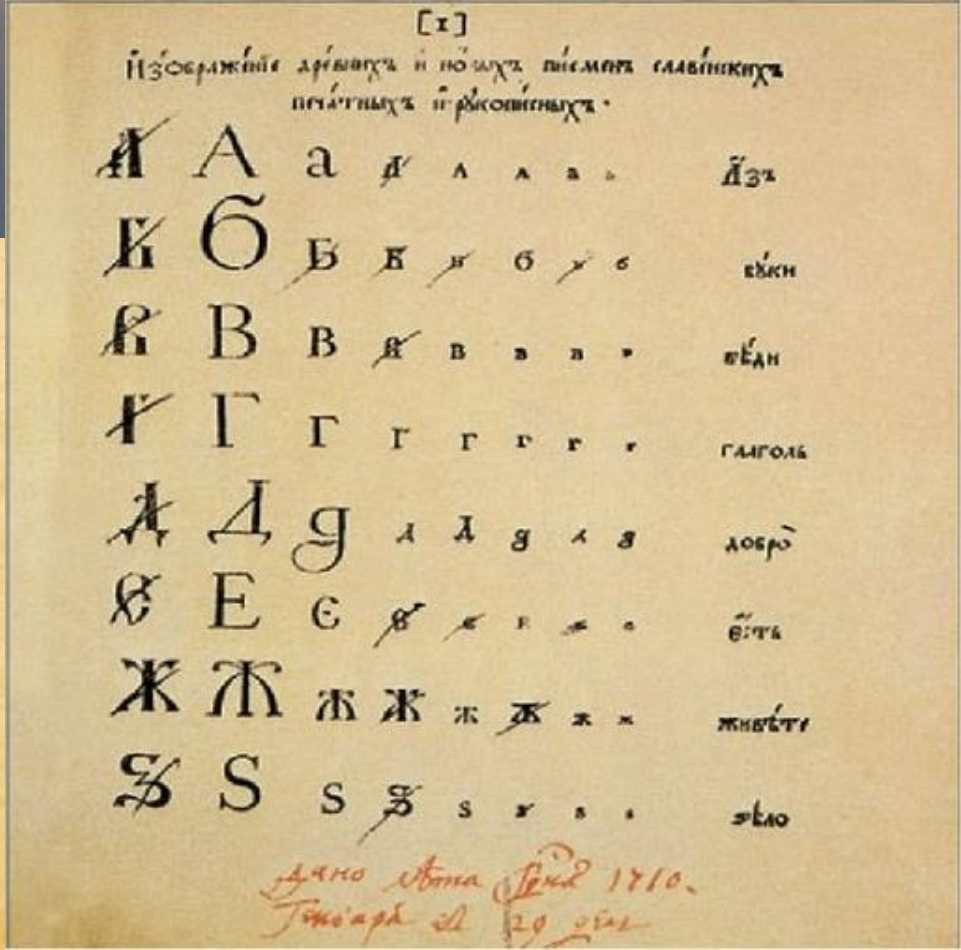 [1]
Изображенїе древнихъ и новыхъ писменъ славенскихъ
печатныхъ и рукописныхъ.
А А а а а а а а Азъ
Б Б Б Б Б б б б буки
В В В В В В В В вѣди
Г Г Г Г Г Г Г Г глаголь
Д Д д д Д д д д добро
Е Е є є є Е є є есть
Ж Ж Ж Ж ж Ж ж ж живѣте
Ѕ Ѕ Ѕ Ѕ ѕ ѕ ѕ ѕ ѕѣло
дано лѣта 1710.
Генваря 29 день